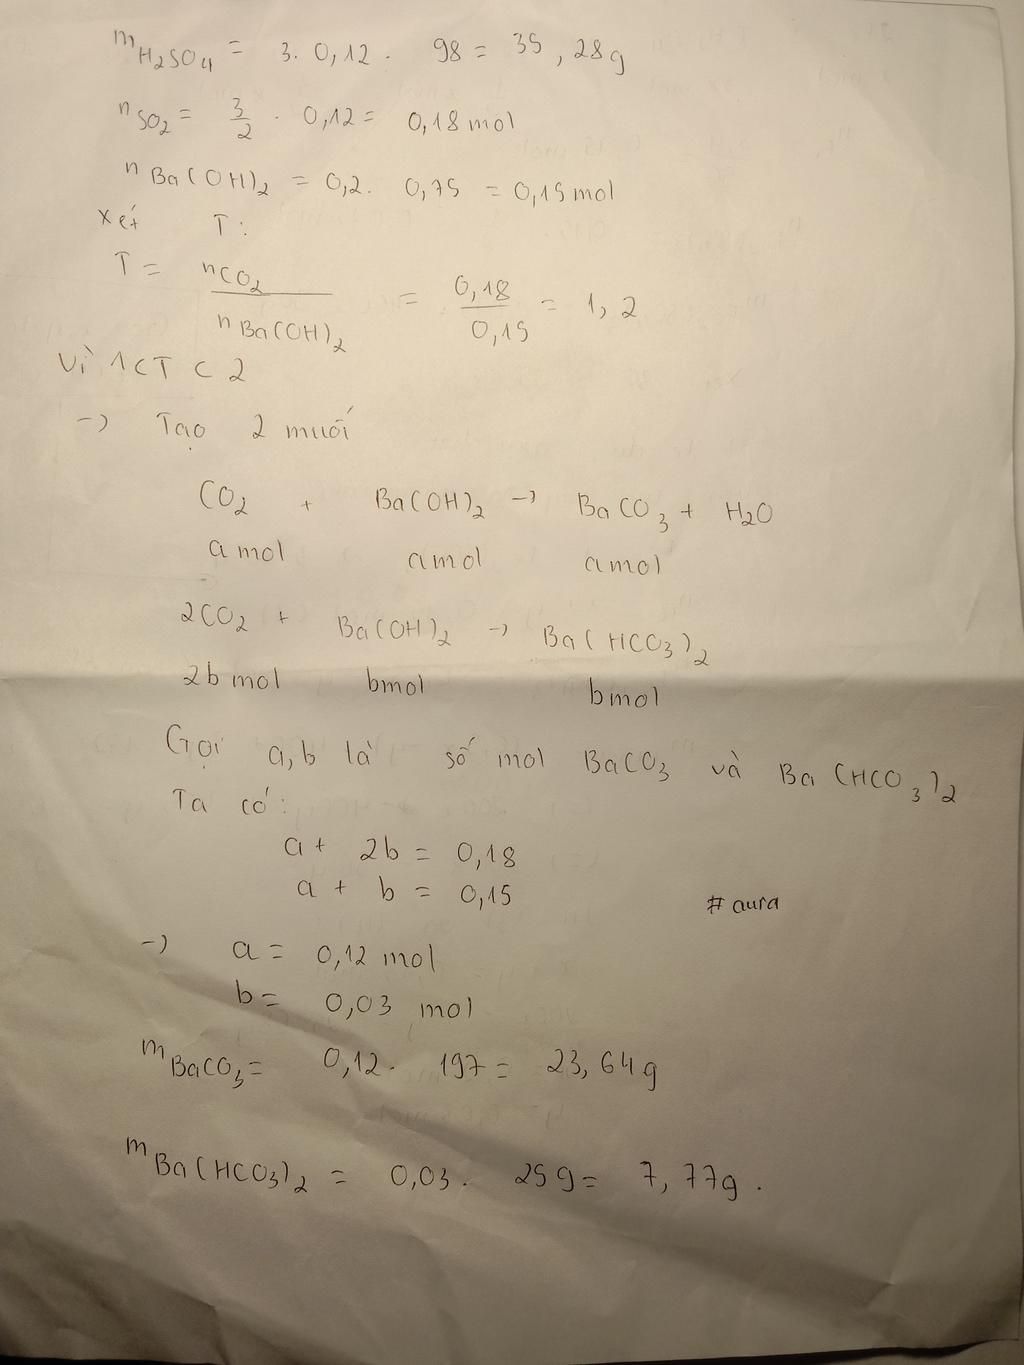 mH₂SO₄ = 3. 0,12. 98 = 35,28g
nSO₂ = 3/2 . 0,12 = 0,18 mol
nBa(OH)₂ = 0,2. 0,75 = 0,15 mol
Xét T:
T = nCO₂ / nBa(OH)₂ = 0,18 / 0,15 = 1,2
Vì 1<T<2
→ Tạo 2 muối
CO₂ + Ba(OH)₂ → BaCO₃ + H₂O
a mol a mol a mol
2CO₂ + Ba(OH)₂ → Ba(HCO₃)₂
2b mol bmol bmol
Gọi a,b là số mol BaCO₃ và Ba(HCO₃)₂
Ta có:
a + 2b = 0,18
a + b = 0,15
#aura
→ a = 0,12 mol
b = 0,03 mol
mBaCO₃ = 0,12. 197 = 23,64g
mBa(HCO₃)₂ = 0,03. 259 = 7,77g.